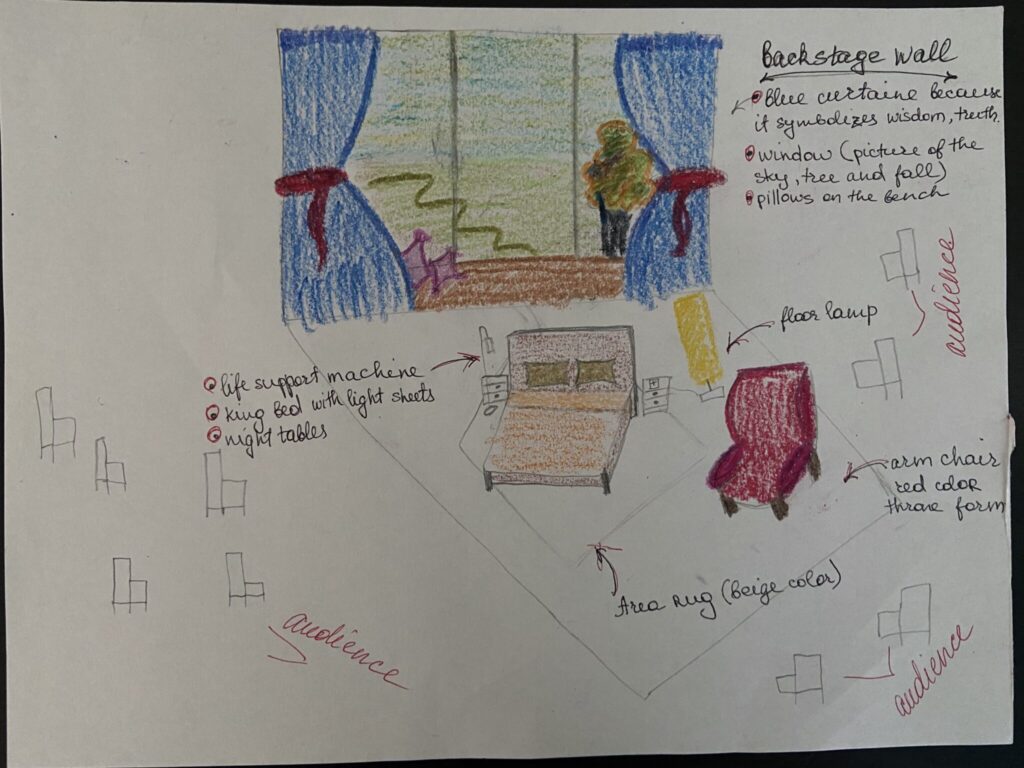 Backstage wall
Blue curtaine because
it symbolizes wisdom, truth.
window (picture of the
sky, tree and fall)
pillows on the bench
audience
floor lamp
life support machine
king bed with light sheets
night tables
arm chair
red color
throne form
Area rug (beige color)
audience
audience